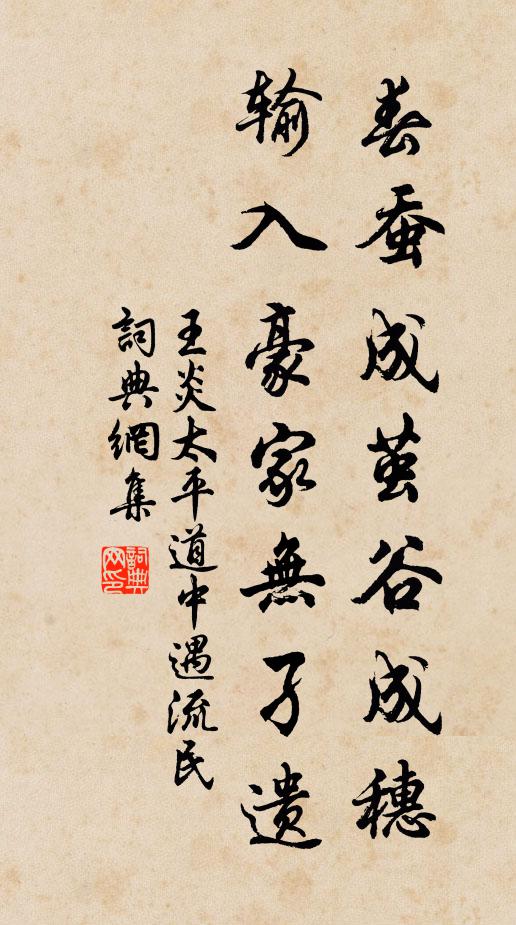 春蚕成茧谷成穗
输入豪家無孑遺
王炎太平道中遇流民
詞典網集
詞典網印